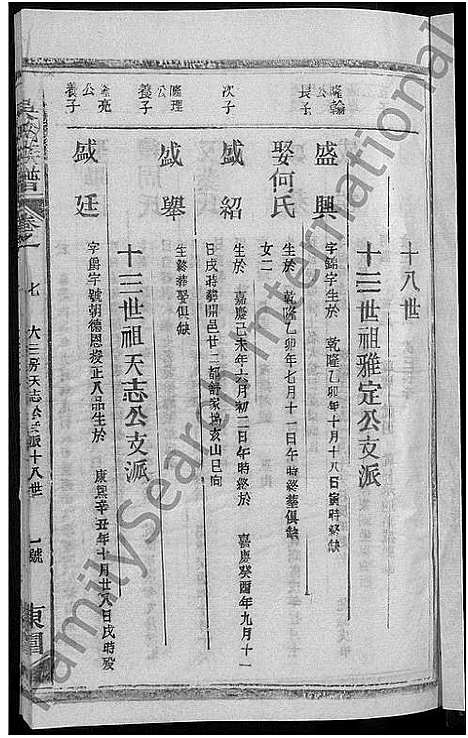 十八世
十三世祖雅定公支派
隆翰公長子
盛興
字錦字生於 乾隆乙卯年十月十八日寅時終缺
娶何氏
生於 乾隆乙卯年七月十一日午時終葬俱缺
女二
次子
盛紹
生於 嘉慶己未年六月初二日午時終於 嘉慶癸酉年九月十一
日戌時葬開邑廿二都舒家塢亥山巳向
隆理公養子
盛舉
生終葬娶俱缺
十三世祖天志公支派
亮公養子
盛廷
字爵字號朝德恩授正八品生於 康熙辛丑年十月廿八日戌時歿
吳氏族譜
卷之一
七
大三房天志公支派十八世
一號
東閣
FamilySearch International